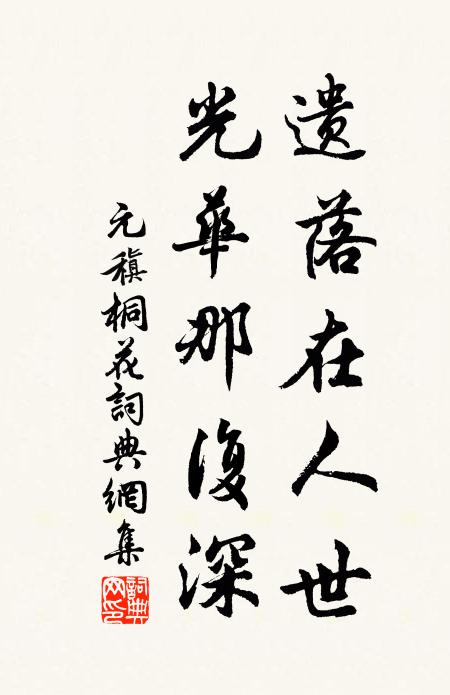 遺落在人世
光華那復深
元稹桐花詞典網集
詞典網印